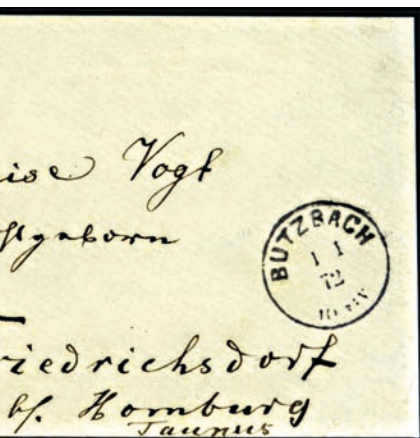 ise Vogt
BUTZBACH
1 1
72
riedrichsdorf
bf. Homburg
Taunus